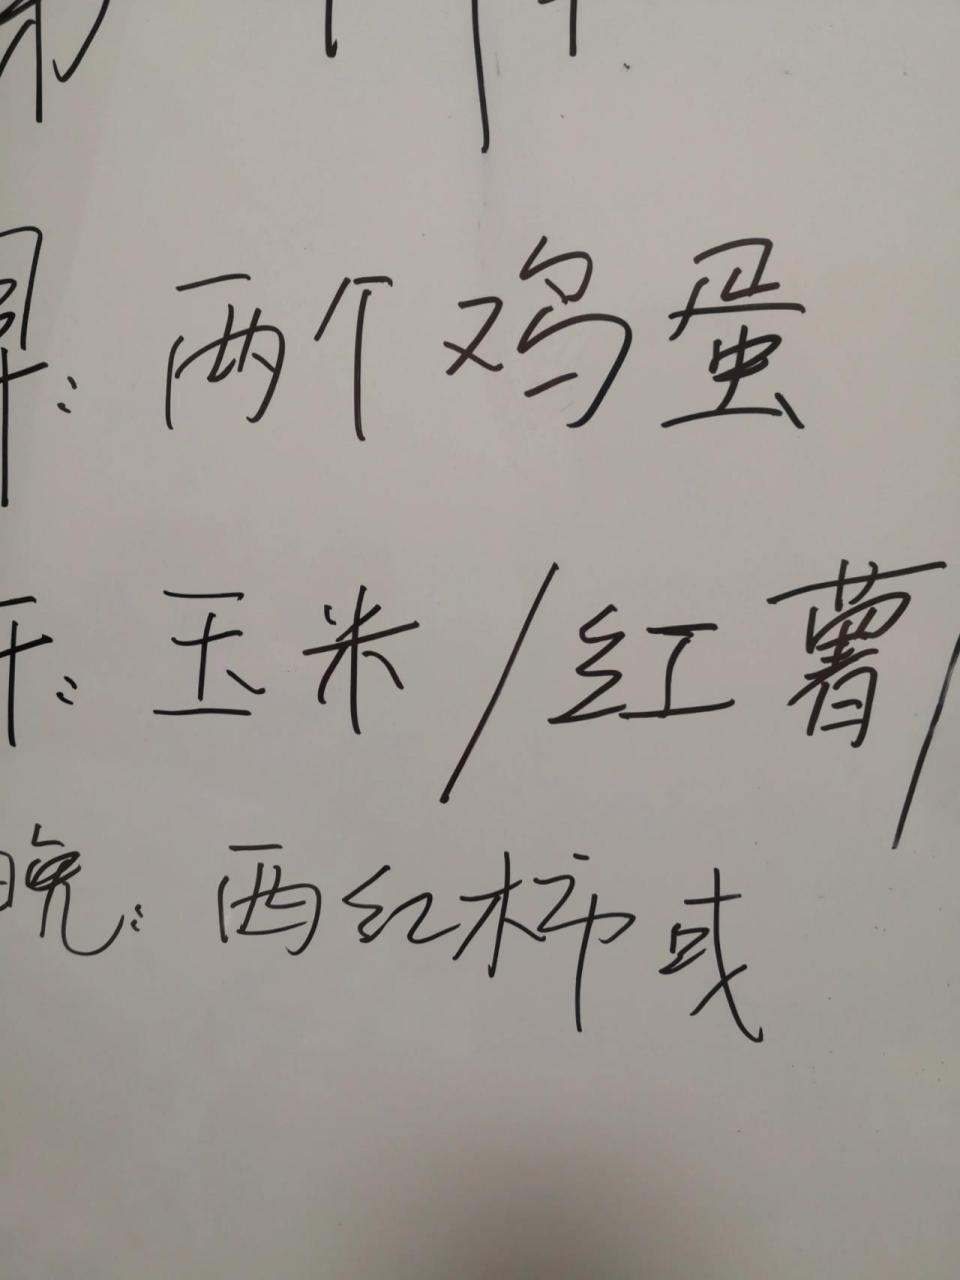 早：两个鸡蛋
午：玉米/红薯/
晚：西红柿或